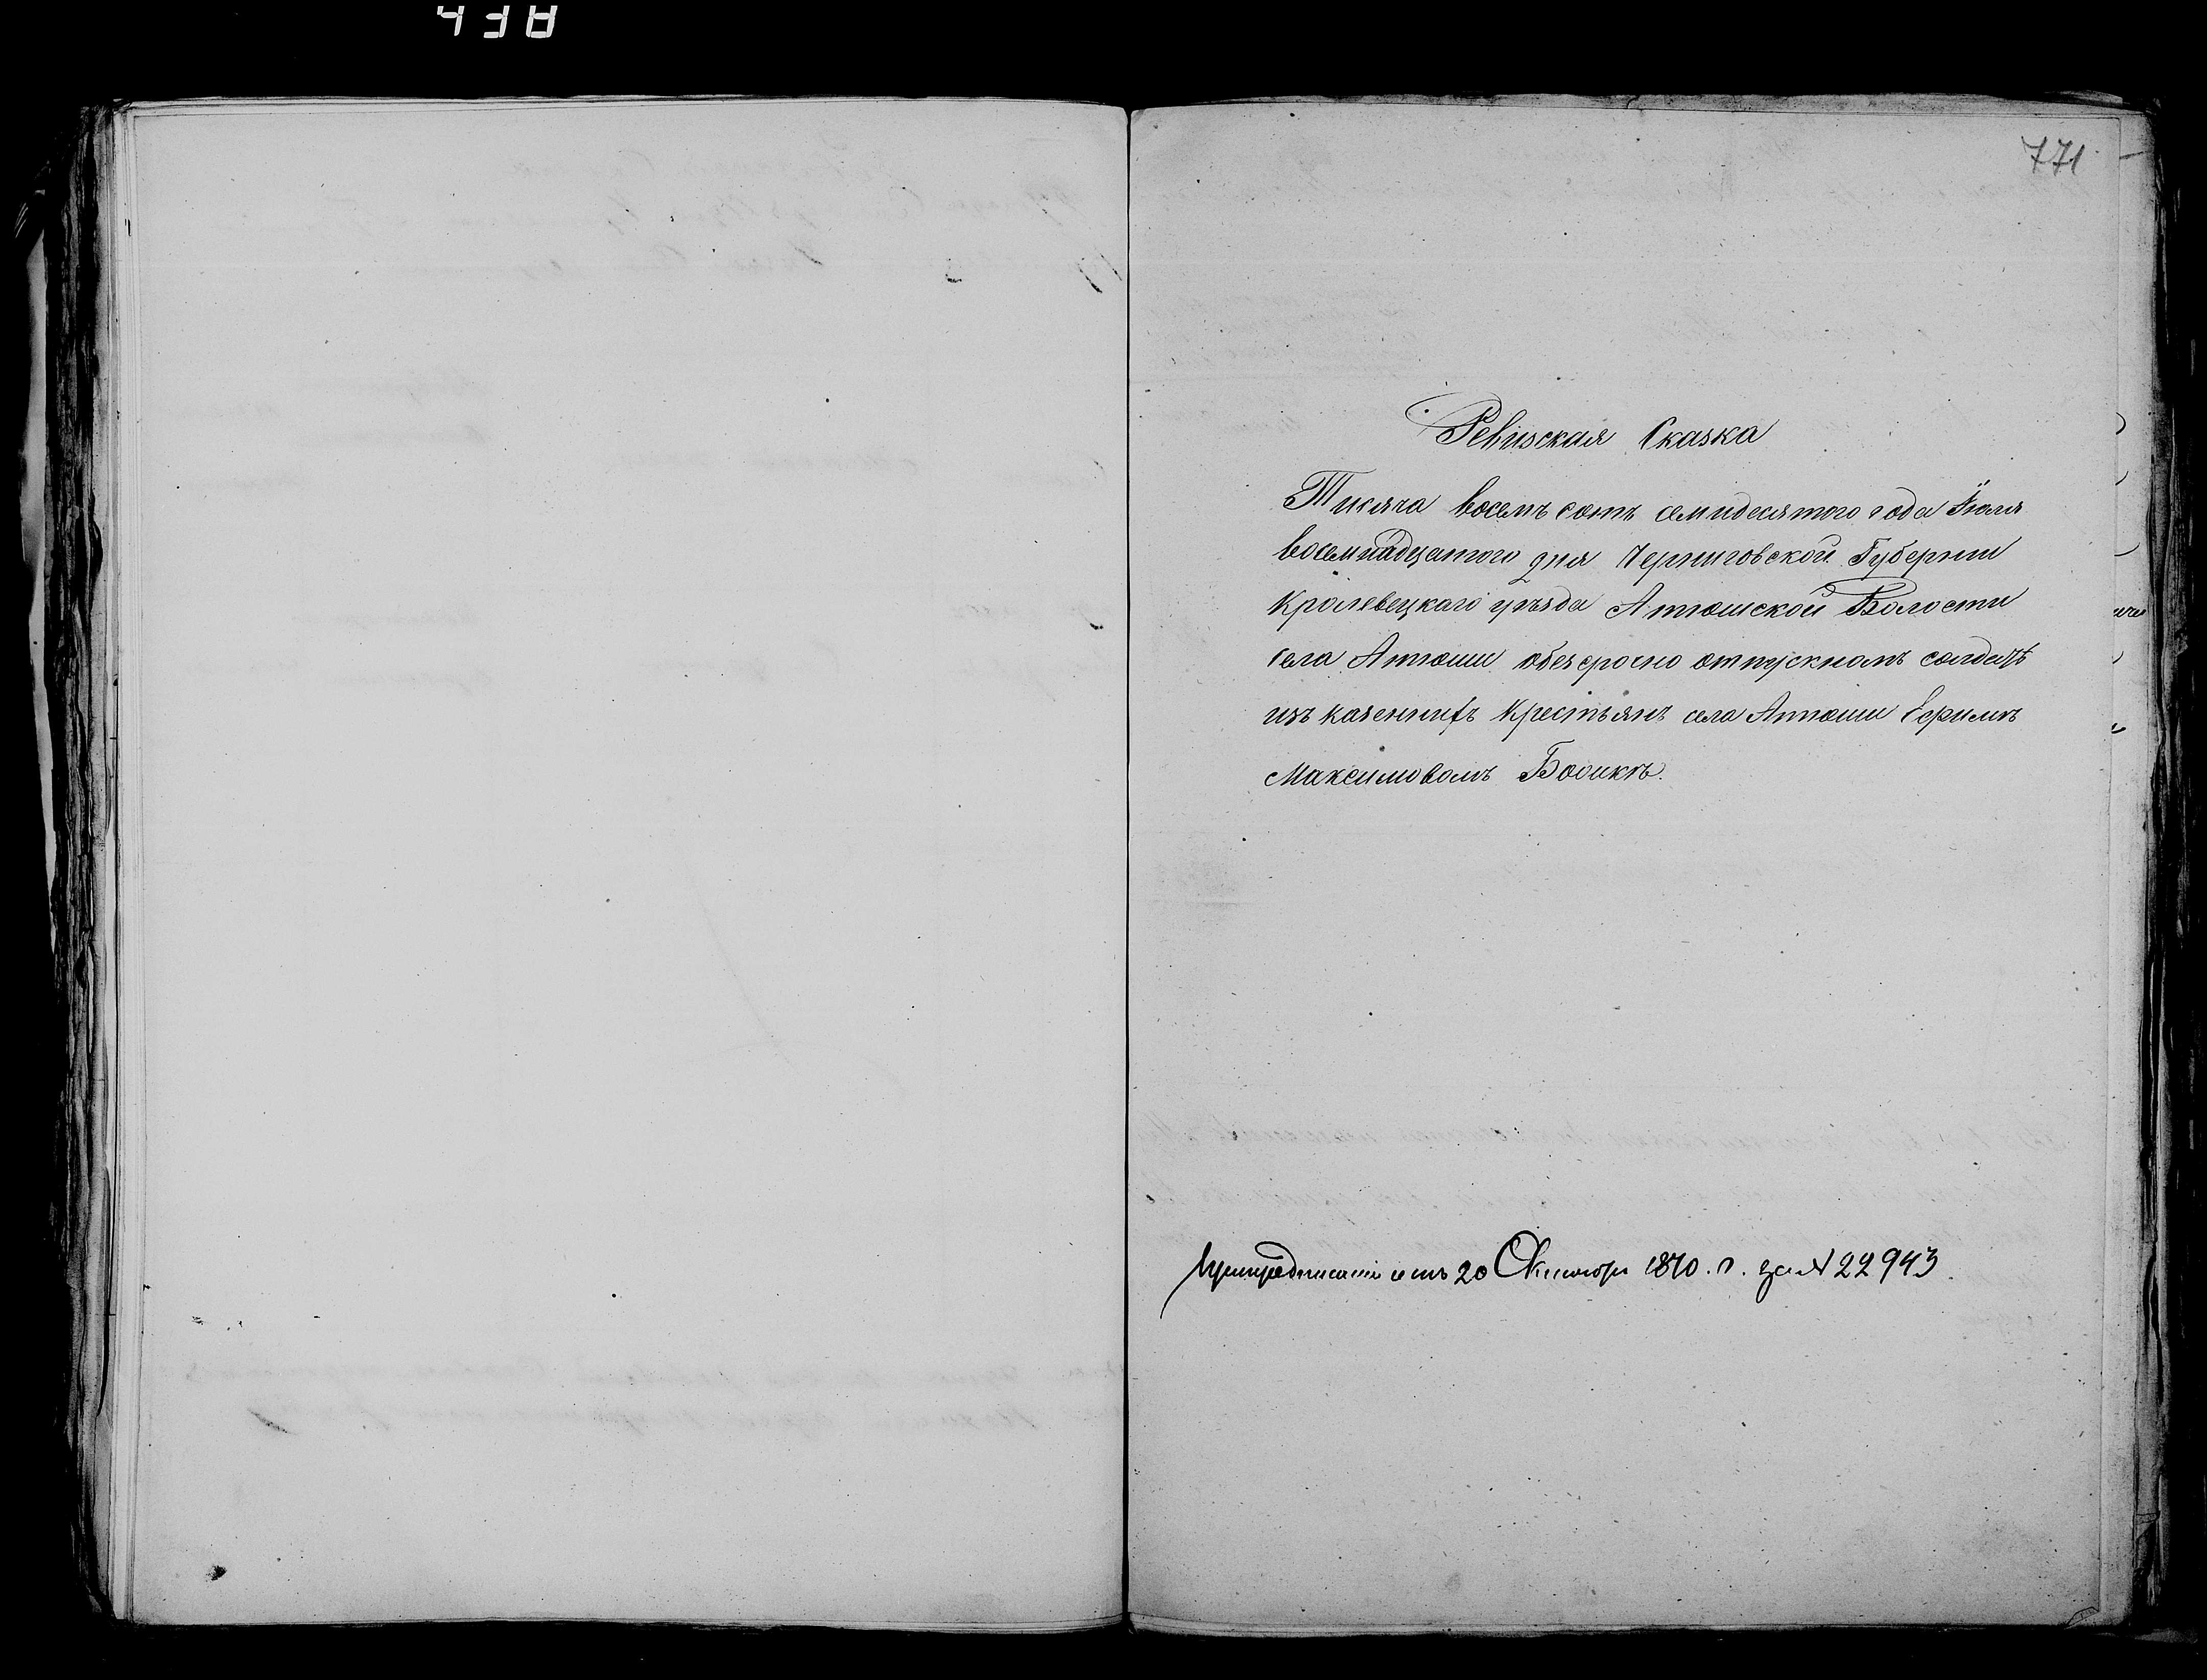 771
Ревизская Сказка
Тисяча восемъ сотъ семидесятого года Іюля
восемнадцатого дня Черниговской Губернии
Кролевецкаго уѣзда Атюшской Волости
села Атюши обезсрочно отпускномъ солдатѣ
изъ казеннихъ Крестьянъ села Атюши Ефимѣ
Максимовомъ
При предписаніи отъ 20 Октября 1870. г. за № 22943.